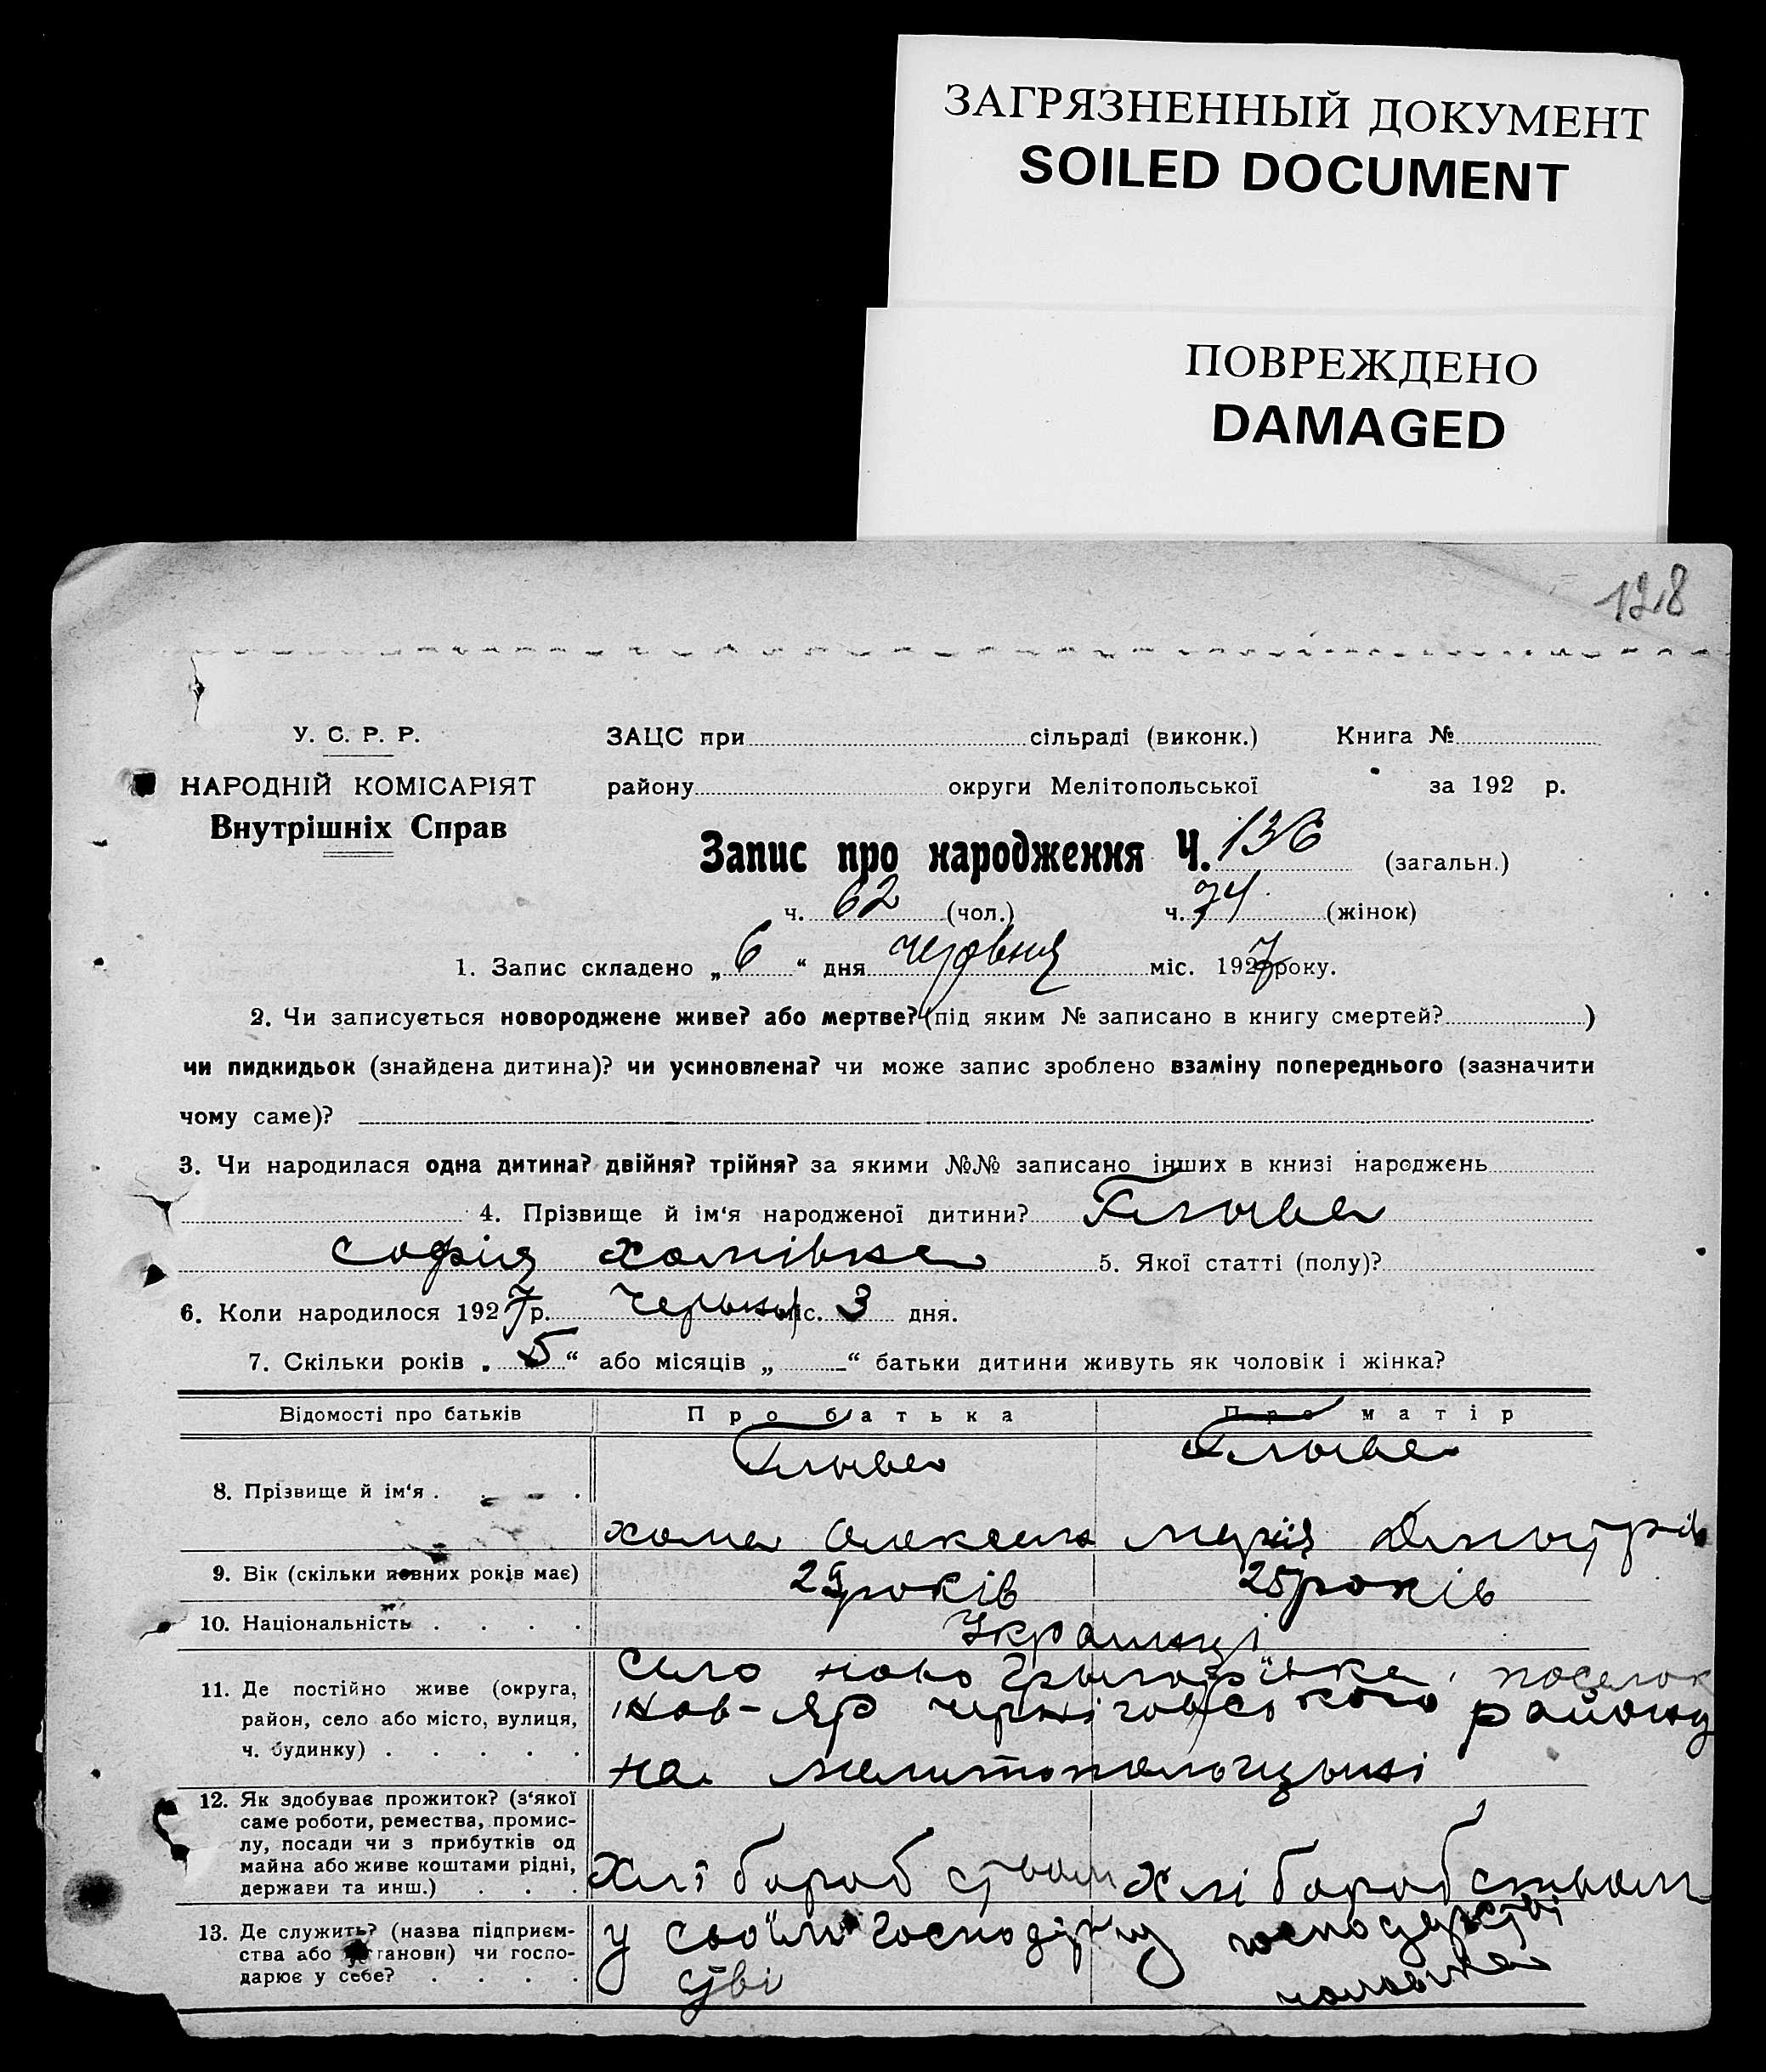 ЗАГРЯЗНЕННЫЙ ДОКУМЕНТ
SOILED DOCUMENT
ПОВРЕЖДЕНО
DAMAGED
128
У. С. Р. Р. ЗАЦС при сільраді (виконк.) Книга №
НАРОДНІЙ КОМІСАРІЯТ району округи Мелітопольської за 192 р.
Внутрішніх Справ
Запис про народження Ч. 136 (загальн.)
ч. 62 (чол.) ч. 74 (жінок)
1. Запис складено „ 6 “ дня червня міс. 1927 року.
2. Чи записується новороджене живе? або мертве? (під яким № записано в книгу смертей? )
чи пидкидьок (знайдена дитина)? чи усиновлена? чи може запис зроблено взаміну попереднього (зазначити
чому саме)?
3. Чи народилася одна дитина? двійня? трійня? за якими №№ записано інших в книзі народжень
4. Прізвище й ім‘я народженої дитини?
софія хомівна 5. Якої статті (полу)?
6. Коли народилося 1927 р. Червня міс. 3 дня.
7. Скільки років „ 5 “ або місяців „ “ батьки дитини живуть як чоловік і жінка?
Відомості про батьків Про батька Про матір
8. Прізвище й ім‘я
хома Олексеив марія Дмитрів
9. Вік (скільки повних років має) 29 років 25 років
10. Національність Украинці
11. Де постійно живе (округа, село ново Григорівка, поселок
район, село або місто, вулиця, яр черніговського району
ч. будинку) на мелитопольщыні
12. Як здобуває прожиток? (з‘якої
саме роботи, ремества, промис-
лу, посади чи з прибутків од
майна або живе коштами рідні, Хліборобством хліборобством
держави та инш.)
13. Де служить? (назва підприєм- у своїм господар господарстві
ства або установи) чи госпо- чоловіка
дарює у себе? стві